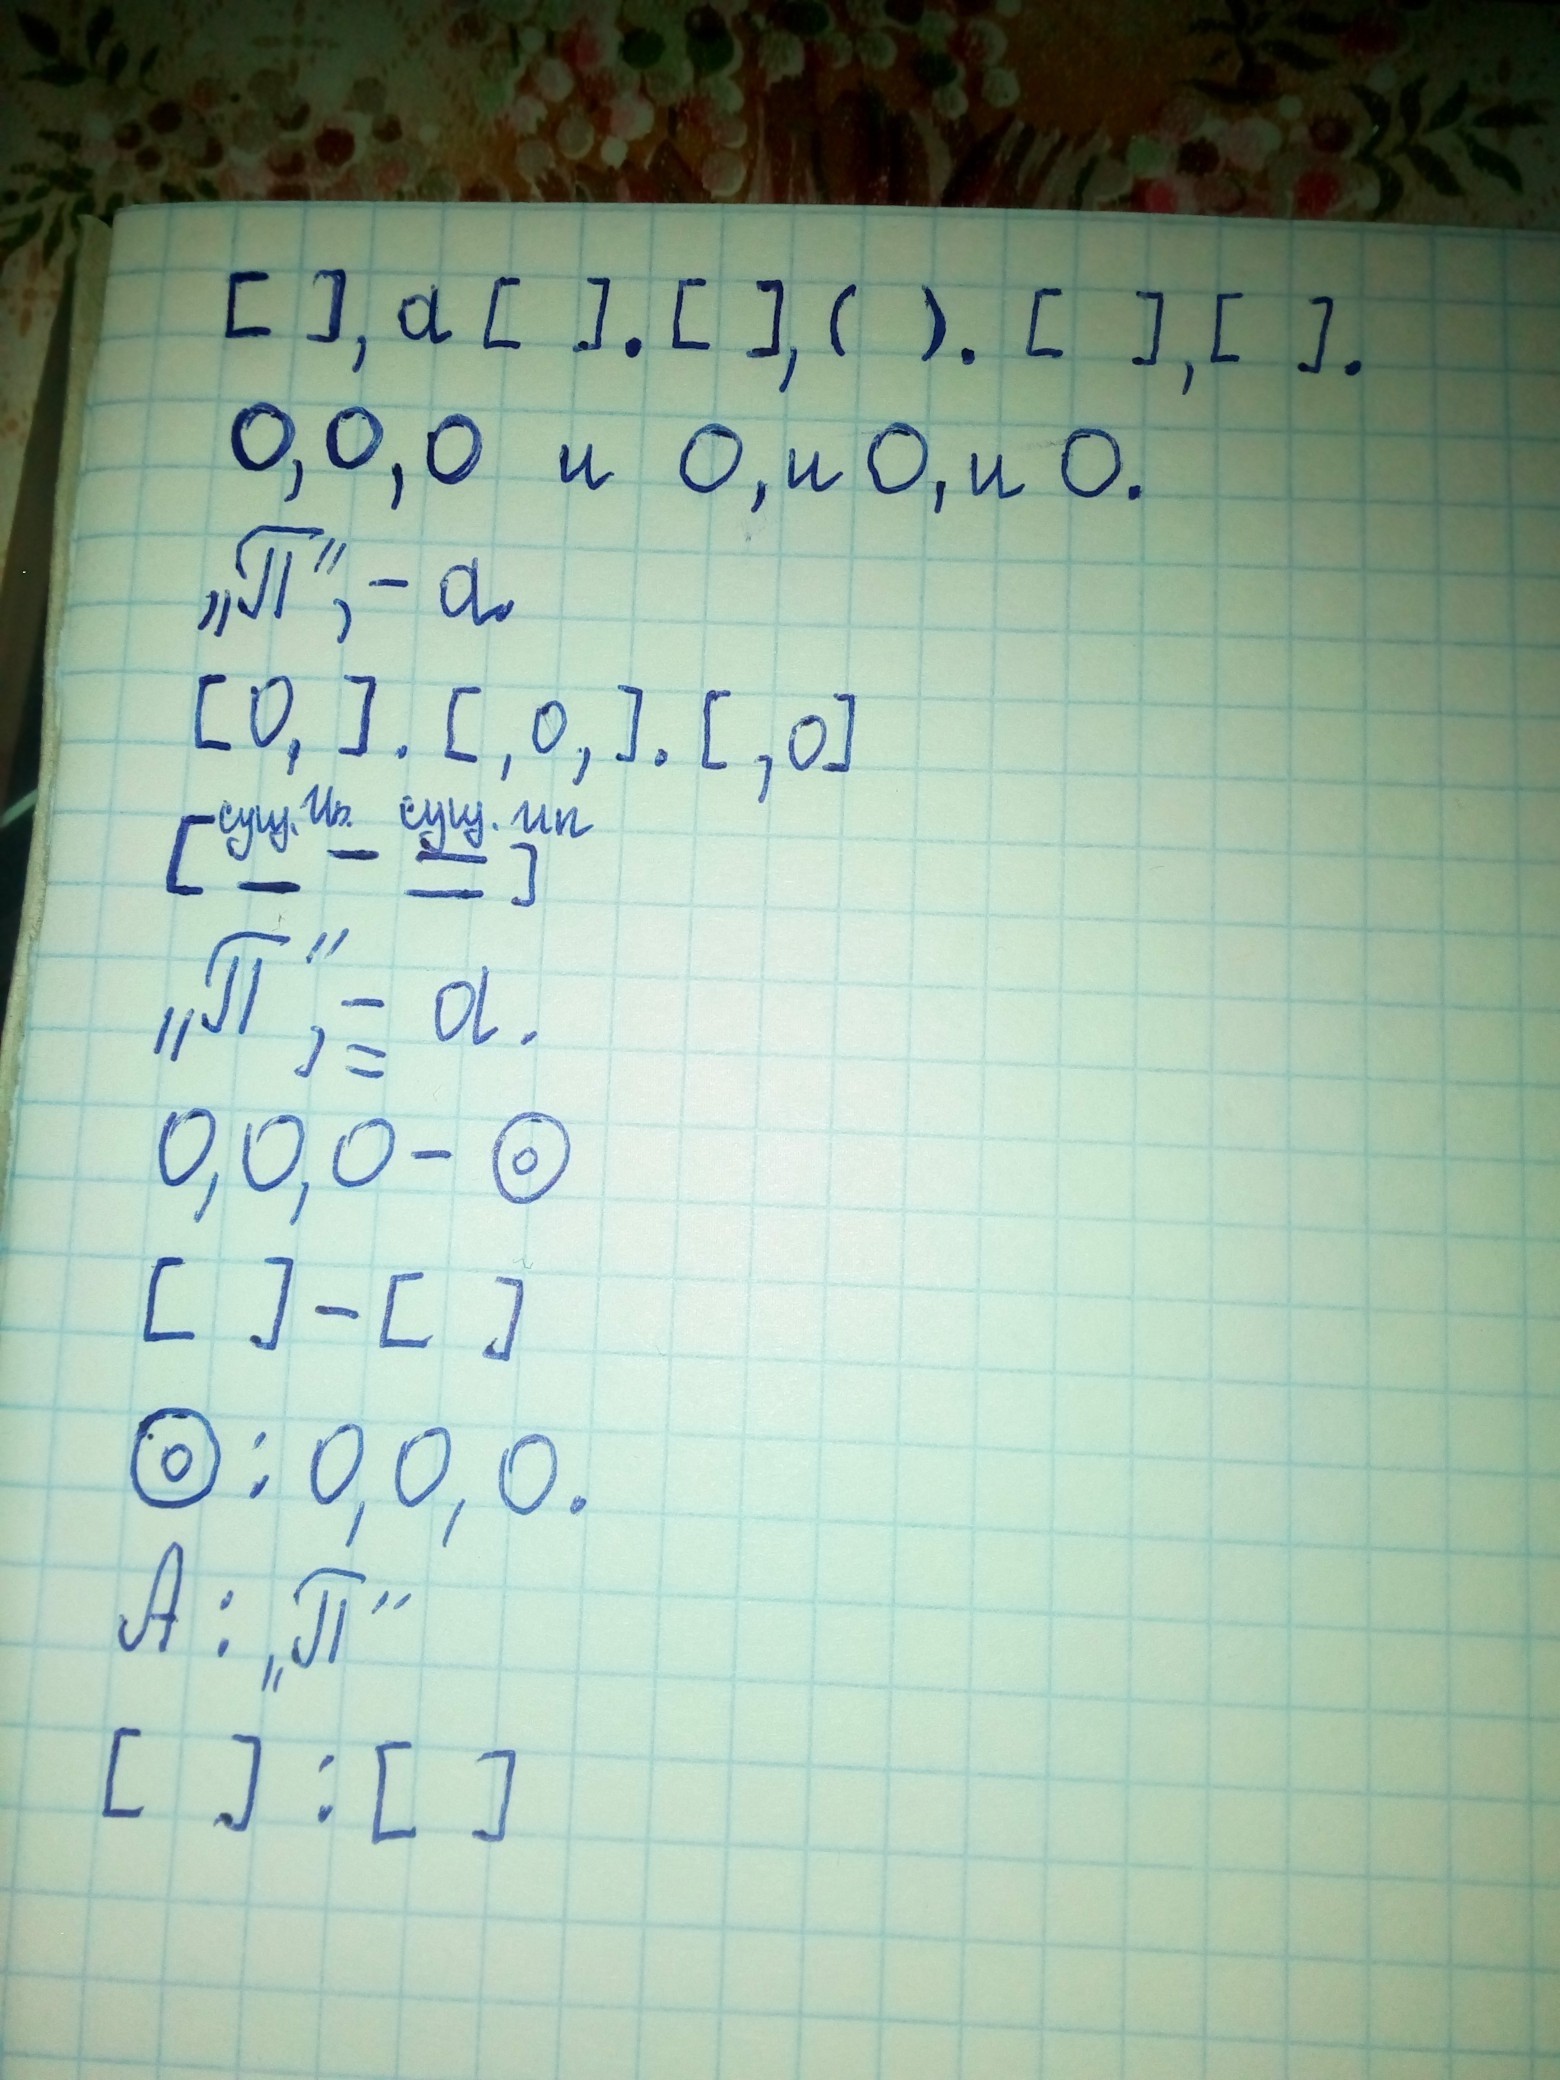 [ ], а [ ]. [ ], ( ). [ ], [ ].
О, О, О и О, и О, и О.
„П”, – а.
[О, ]. [, о, ]. [, о]
сущ. Ип. сущ. ип
[ _ – = ]
„П”, – а.
=
О, О, О – ⊙
[ ] – [ ]
⊙ : О, О, О.
А : „П”
[ ] : [ ]